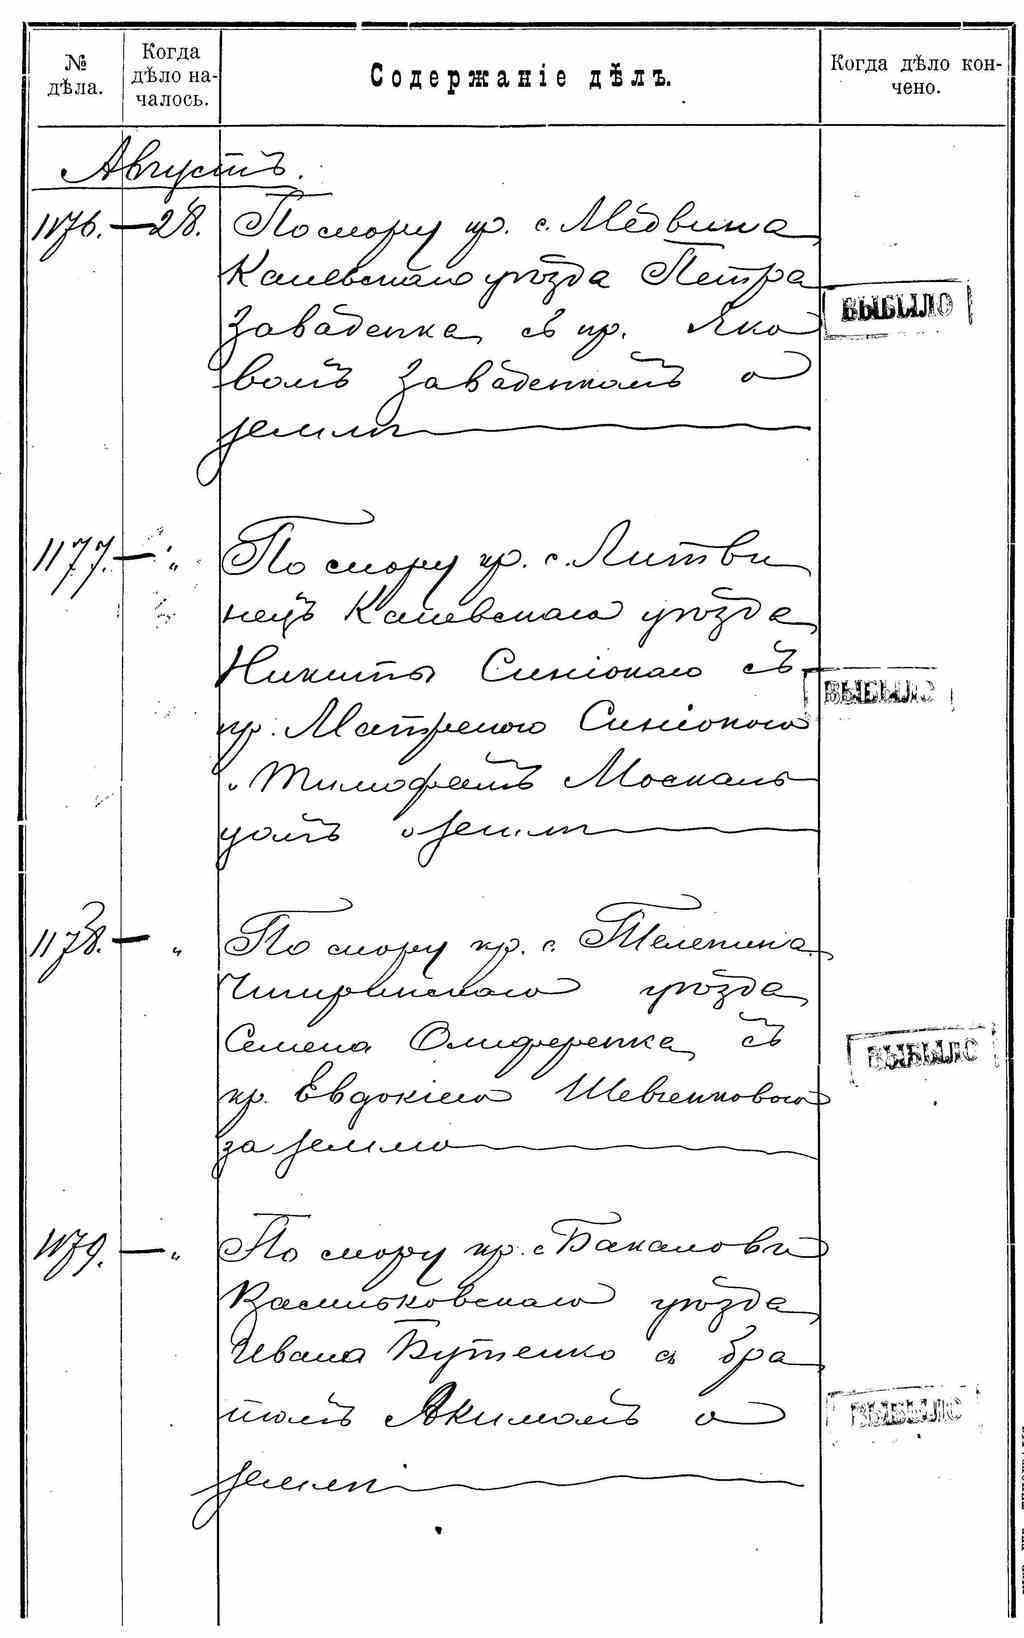 № дѣла.
Когда дѣло на-
чалось.
Содержаніе дѣлъ.
Когда дѣло кон-
чено.
Августъ.
1176. — 28. По спору кр. с. Медвина
Каневскаго уѣзда Петра
Заваденка съ кр. Яко
вомъ Заваденкомъ о
землѣ
ВЫБЫЛО
1177. — " По спору кр. с. Литви
нецъ Каневскаго уѣзда
Никиты Синіокаго съ
кр. Матреною Синіокою
и Тимофеемъ Москаль
цомъ о землѣ
ВЫБЫЛО
1178. — " По спору кр. с. Телепина
Чигиринскаго уѣзда
Семена Олиференка съ
кр. Евдокіею Шевченковою
за землю
ВЫБЫЛО
1179. — " По спору кр. с Бакаловки
Васильковскаго уѣзда
Ивана Бутенко съ бра
томъ Акимомъ о
землѣ
ВЫБЫЛО